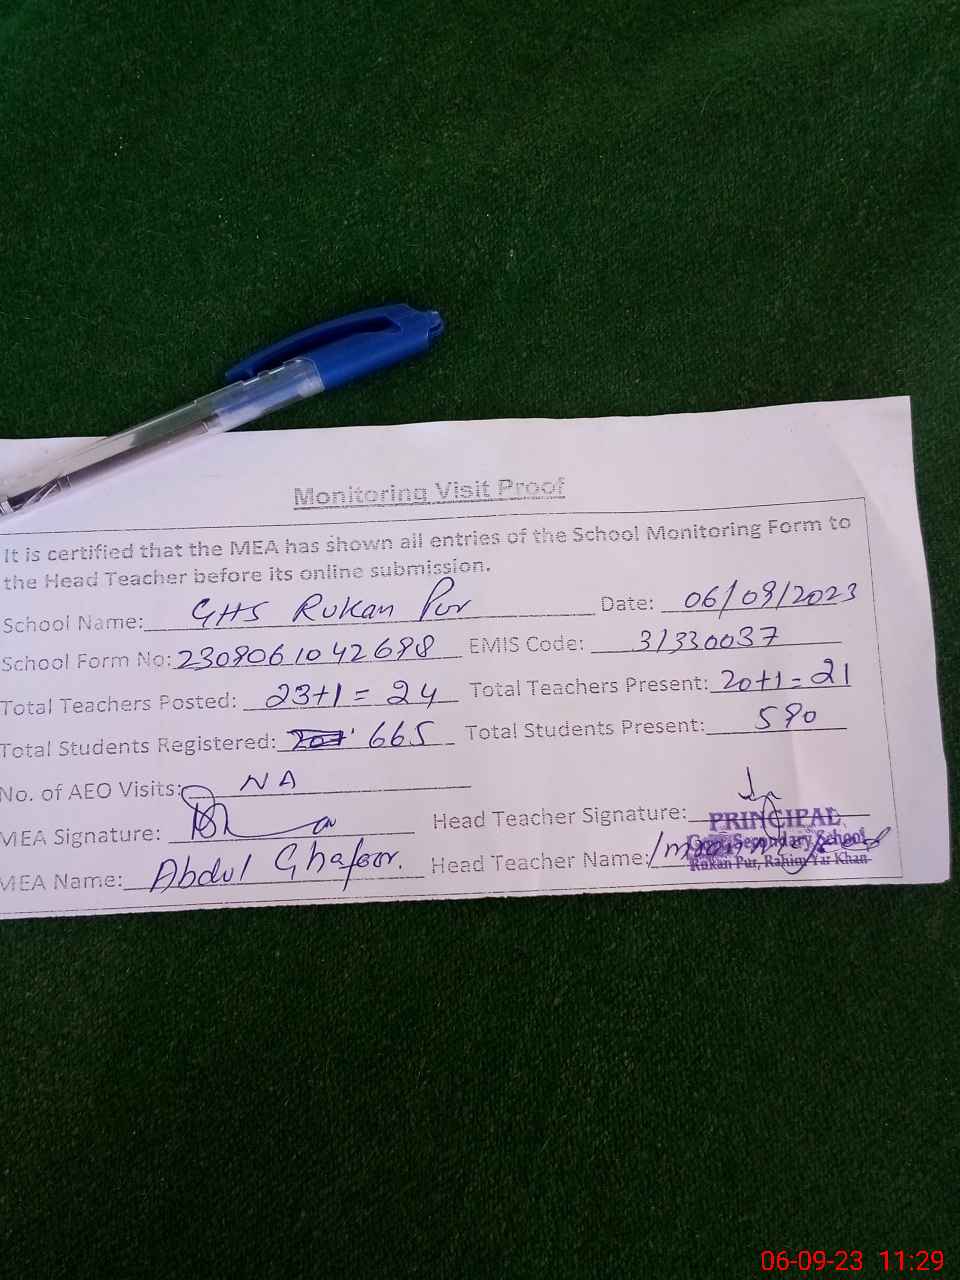 Monitoring Visit Proof
It is certified that the MEA has shown all entries of the School Monitoring Form to
the Head Teacher before its online submission.
School Name: GHS Rukan Pur Date: 06/09/2023
School Form No: 2309061042698 EMIS Code: 31330037
Total Teachers Posted: 23+1 = 24 Total Teachers Present: 20+1 = 21
Total Students Registered: 665 Total Students Present: 590
No. of AEO Visits: NA
MEA Signature: Head Teacher Signature:
PRINCIPAL
MEA Name: Abdul Ghafoor. Head Teacher Name:
Secondary School
Rukan Pur, Rahim Yar Khan
06-09-23 11:29